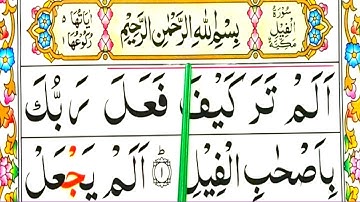 سُورَةُ الْفِيْلِ مَكِّيَّةٌ
بِسْمِ اللّٰهِ الرَّحْمٰنِ الرَّحِيْمِ
اٰيَاتُهَا ٥ رُكُوْعُهَا ١
اَلَمْ تَرَ كَيْفَ فَعَلَ رَبُّكَ
بِاَصْحٰبِ الْفِيْلِ ۝١ؕ اَلَمْ يَجْعَلْ